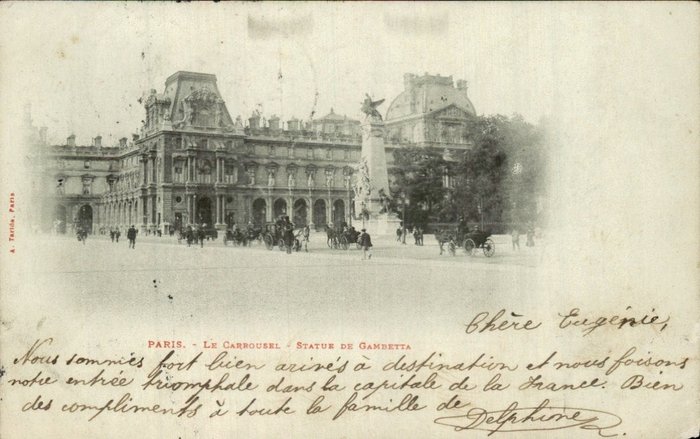 A. Taride, Paris
PARIS. - LE CARROUSEL - STATUE DE GAMBETTA
Chère Eugénie,
Nous sommes fort bien arivés à destination et nous faisons
notre entrée triomphale dans la capitale de la France. Bien
des compliments à toute la famille de Delphine